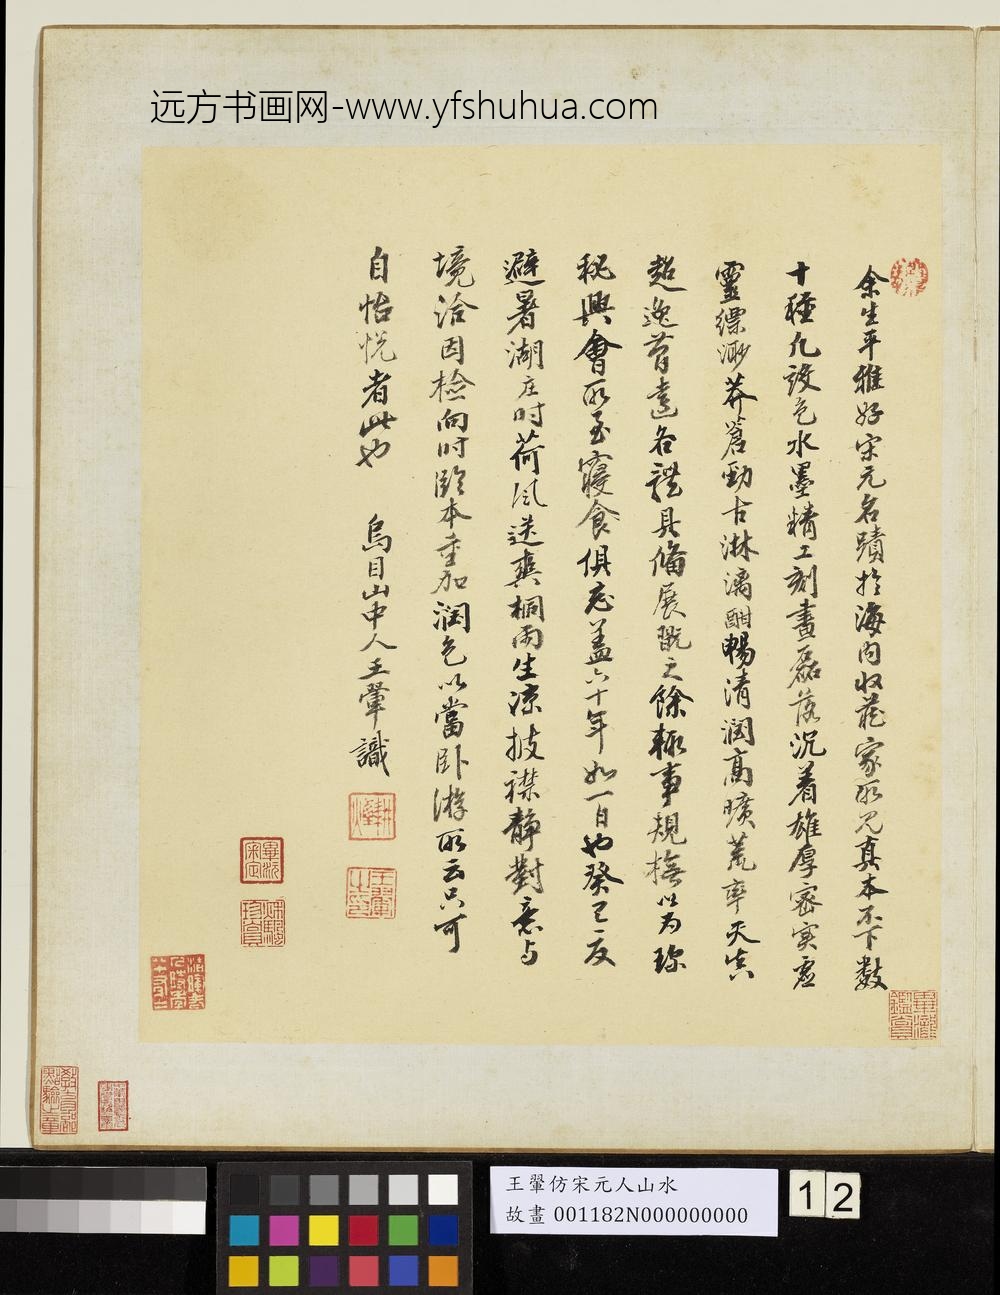 远方书画网-www.yfshuhua.com
余生平雅好宋元名蹟於海內收藏家所見真本不下數
十種凡設色水墨精工刻畫磊落沉着雄厚密實虛
靈縹渺莽蒼勁古淋漓酣暢清潤高曠荒率天真
超逸蒼遠各體具備展翫之餘輒事規橅以為珍
秘興會所至寢食俱忘蓋六十年如一日也癸巳夏
避暑湖庄時荷風送爽桐雨生涼披襟靜對意與
境洽因檢向時臨本重加潤色以當臥游所云只可
自怡悅者此也 烏目山中人王翬識
耕煙
王翬之印
畢沅審定
珍賞
畢瀧鑑賞
王翬仿宋元人山水
故畫 001182N000000000
12